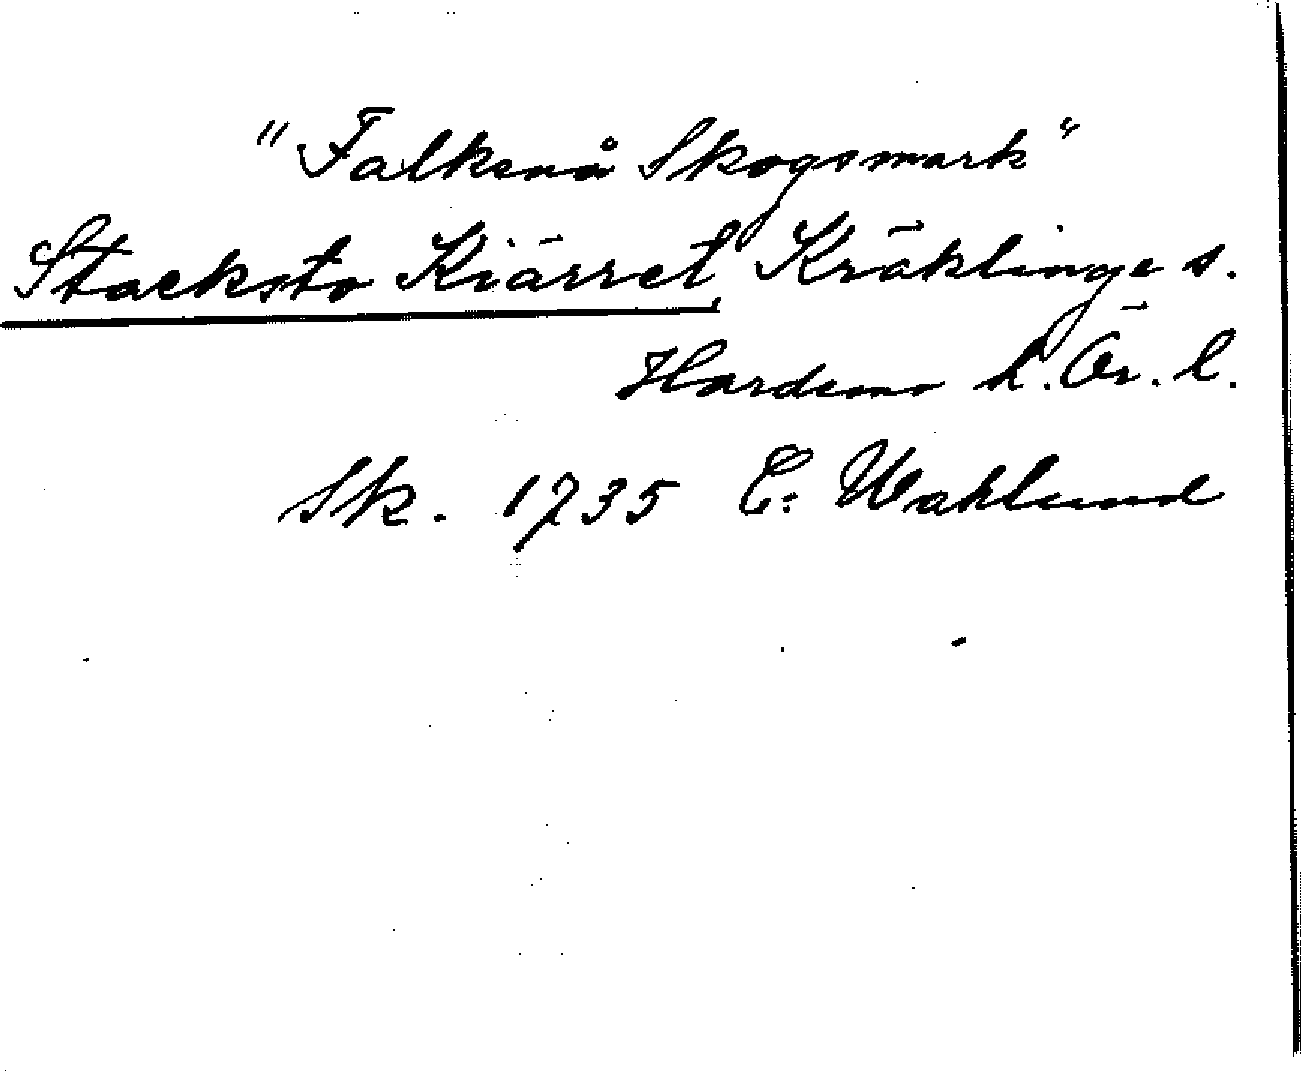 "Falkenå Skogsmark"
Stacksto Kiärret, Kräklinge s.
Hardemo h. Ör. l.
Sk. 1735 E: Waklund